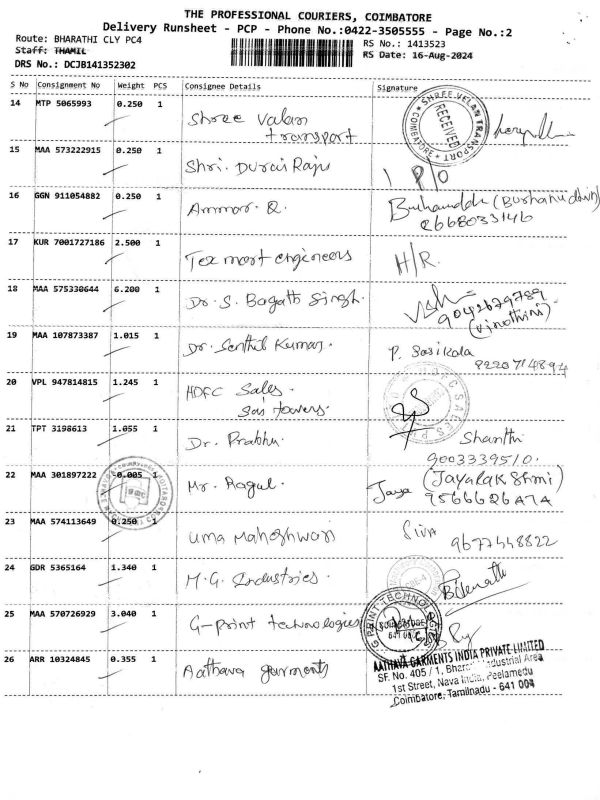 THE PROFESSIONAL COURIERS, COIMBATORE
Delivery Runsheet - PCP - Phone No.:0422-3505555 - Page No.:2
Route: BHARATHI CLY PC4
RS No.: 1413523
Staff: THAMIL
RS Date: 16-Aug-2024
DRS No.: DCJB141352302
S No Consignment No Weight PCS Consignee Details Signature
14 MTP 5065993 0.250 1 Shree Valan
transport
SHREE VELAN TRANSPORT COIMBATORE
RECEIVED
15 MAA 573222915 0.250 1 Shri. Durai Raju
P/O
16 GGN 911054882 0.250 1 Ammar. Q.
(Burhanuddin)
17 KUR 7001727186 2.500 1 Tex mart engineers H/R.
18 MAA 575330644 6.200 1 Dr. S. Bagath Singh.
9042679789
(Vinothini)
19 MAA 107873387 1.015 1 Dr. Senthil Kumar. P. Sasikala
20 VPL 947814815 1.245 1 HDFC Sales.
Sai towers.
21 TPT 3198613 1.055 1 Dr. Prabhu. Shanthi
9003339510.
22 MAA 301897222 0.005 1 Mr. Ragul. Jaya (Jayalakshmi)
9566626474
23 MAA 574113649 0.250 1 Uma Maheshwari Siva
9677448822
24 GDR 5365164 1.340 1 M.G. Industries.
25 MAA 570726929 3.040 1 G-Print technologies
G PRINT TECHNOLOGIES
26 ARR 10324845 0.355 1 Aathava garments
AATHAVA GARMENTS INDIA PRIVATE LIMITED
SF. No. 405 / 1, Industrial Area
1st Street, Nava India, Peelamedu
Coimbatore, Tamilnadu - 641 004